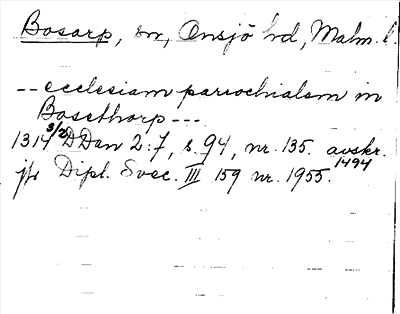 Bosarp, sn, Onsjö hd, Malm. l.
-- ecclesiam parrochialem in
Bosethorp ---
1314 3/2 DDan 2:7, s. 94, nr. 135. avskr. 1494
jfr Dipl. Svec. III 159 nr. 1955.